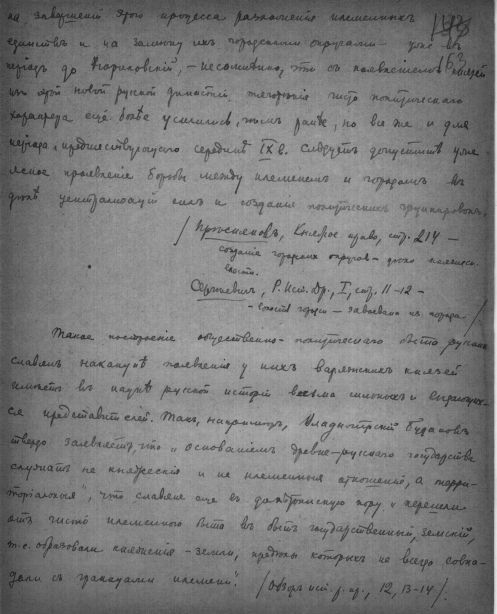 на завершенiи этого процесса разложенiя племенныхъ
единствъ и на замену ихъ городскими округами – уже въ
перiодъ до Рюриковскiй, – несомнѣнно, что съ появленiемъ князей
изъ этой новой русской династiи, тяготѣнiя чисто политическаго
характера еще болѣе усилились, чѣмъ ранѣе, но все же и для
перiода, предшествующаго серединѣ IX в. слѣдуетъ допустить уже
ясное проявленiе борьбы между племенемъ и городомъ въ
духѣ централизацiи силъ и созданiе политическихъ группировокъ.
/ Прѣсняковъ, Княжое право, стр. 214 –
созданiе городскихъ округовъ –
Сергѣевичъ, Р. Юр. Др., I, стр. 11-12 –
города /
Такое построенiе общественно-политическаго быта русскихъ
славянъ наканунѣ появленiя у нихъ варяжскихъ князей
имѣетъ въ наукѣ русской исторiи весьма сильныхъ и выдающих-
ся представителей. Такъ, напримѣръ, Владимiрскiй-Будановъ
твердо заявляетъ, что „основанiемъ древне-русскаго государства
служатъ не княжескiя и не племенныя отношенiя, а терри-
торiальныя", что славяне еще въ долѣтописную пору „перешли
отъ чисто племенного быта въ бытъ государственный, земскiй,
т.е. образовали княженiя – земли, предѣлы которыхъ не всегда совпа-
дали съ границами племени". / Обзоръ ист. р. пр., 12, 13-14 /.